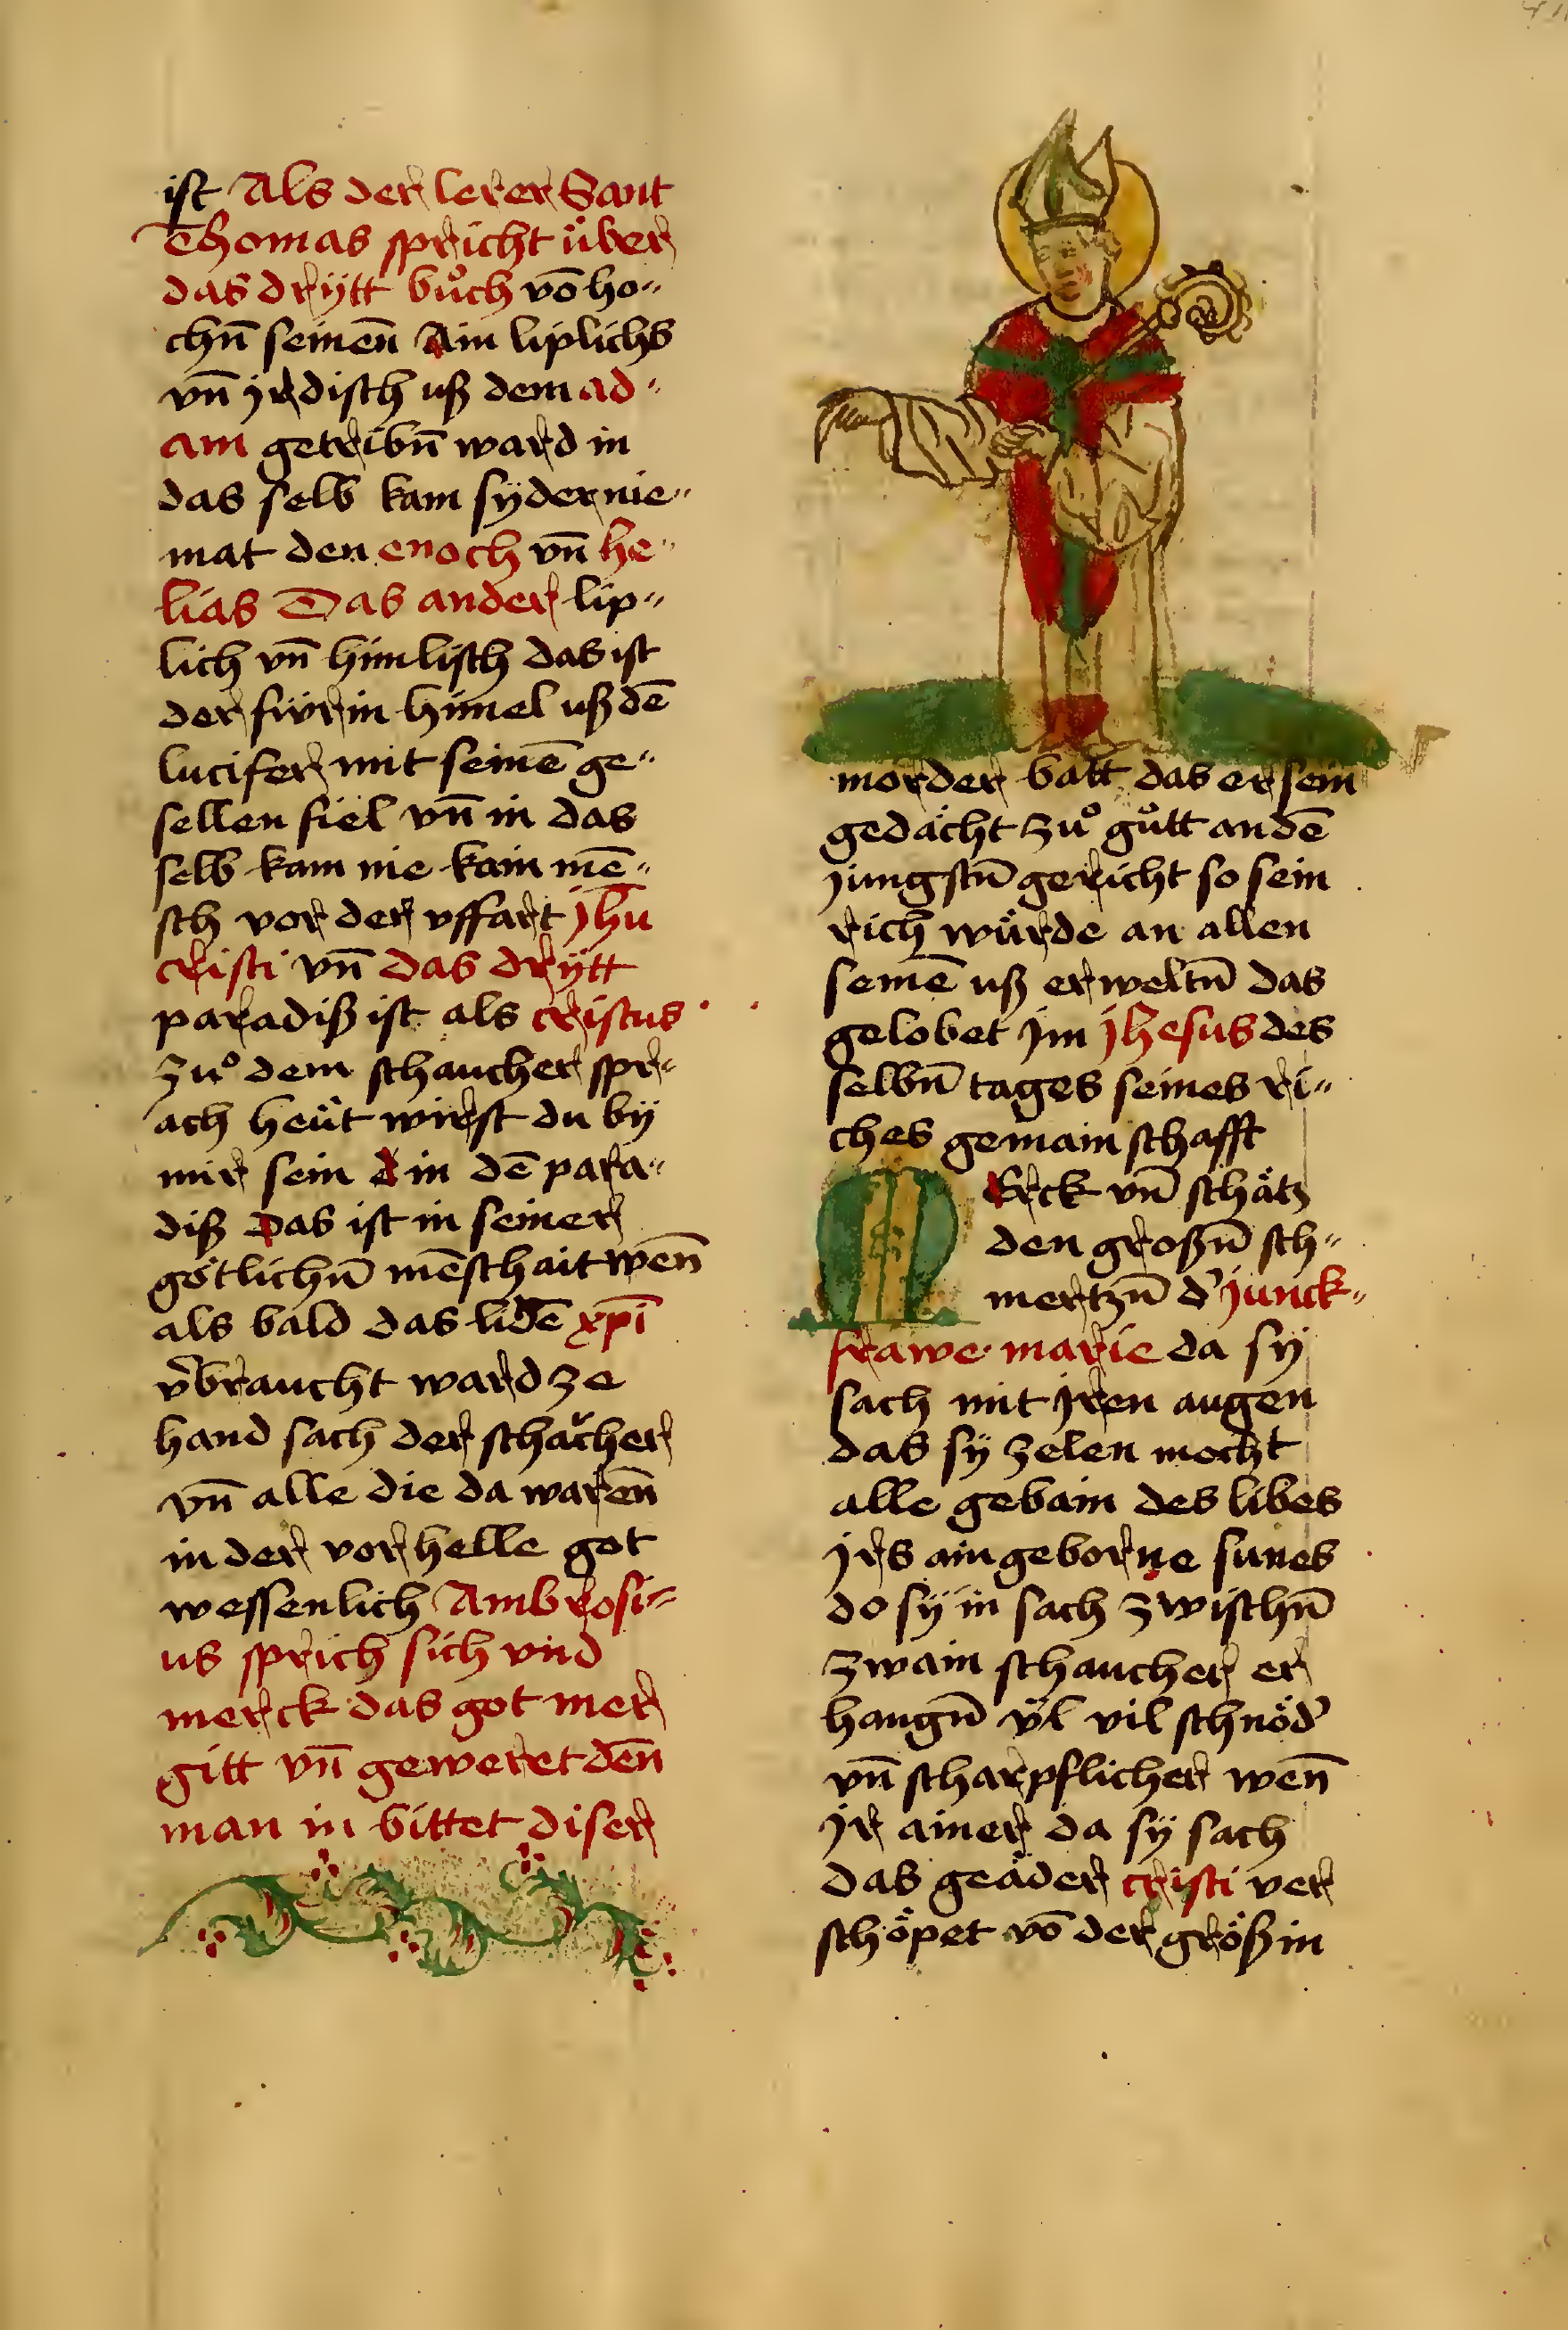 ist Als der lerer Sant
Thomas spricht über
das drÿtt bůch vō ho„
chn̄ seinen̄ Ain liplichs
vn̄ jrdisch uß dem ad„
am getribn̄ ward in
das selb kam sÿder nie„
mat den enoch vn̄ he„
lias Das ander lip„
lich vn̄ himlisch das ist
der fiỳr in himel uß dē
lucifer mit seinē ge„
sellen fiel vn̄ in das
selb kam nie kain mē„
sch vor der uffart jhū
cristi vn̄ das drÿtt
paradiß ist als cristus
zů dem schaucher spr„
ach heüt wirst du bÿ
mir sein in dē para„
diß Das ist in seiner
götlichn̄ mēschait wen̄
als bald das lidē xpī
v̄braucht ward ze
hand sach der schächer
vn̄ alle die da waren̄
in der vorhelle got
wessenlich Ambrosi„
us sprich sich vnd
merck das got mer
gitt vn̄ geweret den̄
man in bittet diser
morder batt das er sein
gedächt zů gůtt an dē
jungstn̄ gericht so sein
rich würde an allen
seinē uß erweltn̄ das
gelobet jm jhesus des
selbn̄ tages seines ri„
ches gemainschafft
MErck vn̄ schätz
den großn̄ sch„
mertzn̄ d' junck„
frawe marie da sÿ
sach mit jren augen
das sÿ zelen mocht
alle gebain des libes
jrs aingeborne sunes
do sÿ in sach zwischn̄
zwain schaucher er
hangn̄ v̈l vil schnöd'
vn̄ scharpflicher wen̄
jr ainer da sÿ sach
das geäder cristi ver
schöpet vō der größin